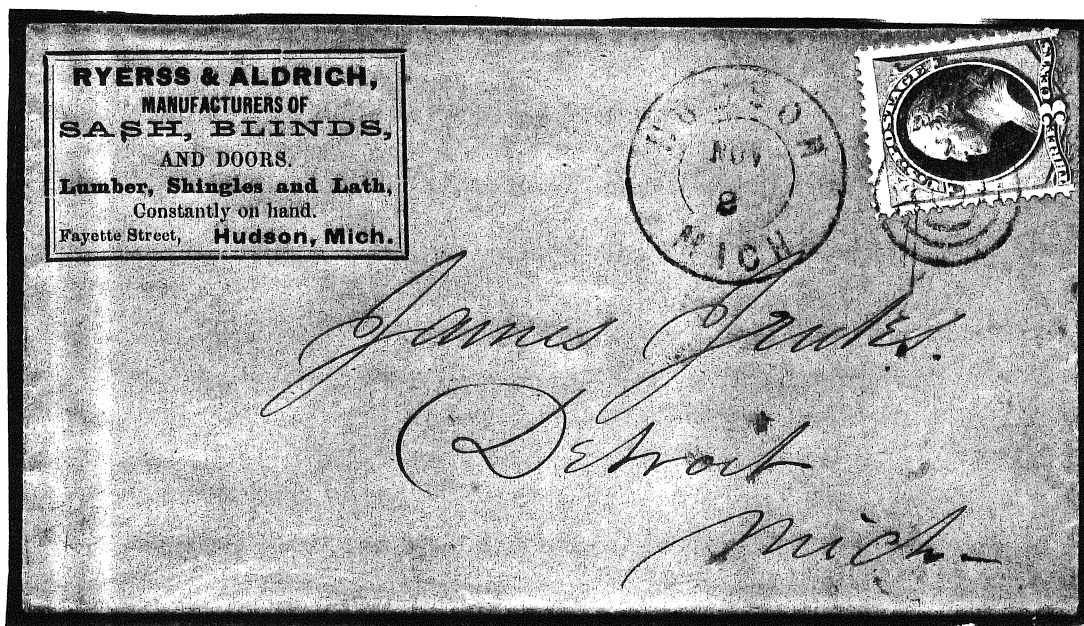 RYERSS & ALDRICH,
MANUFACTURERS OF
SASH, BLINDS,
AND DOORS.
Lumber, Shingles and Lath,
Constantly on hand.
Fayette Street, Hudson, Mich.
HUDSON
NOV
8
MICH
U.S. POSTAGE
THREE 3 CENTS
James Jenks.
Detroit
Mich